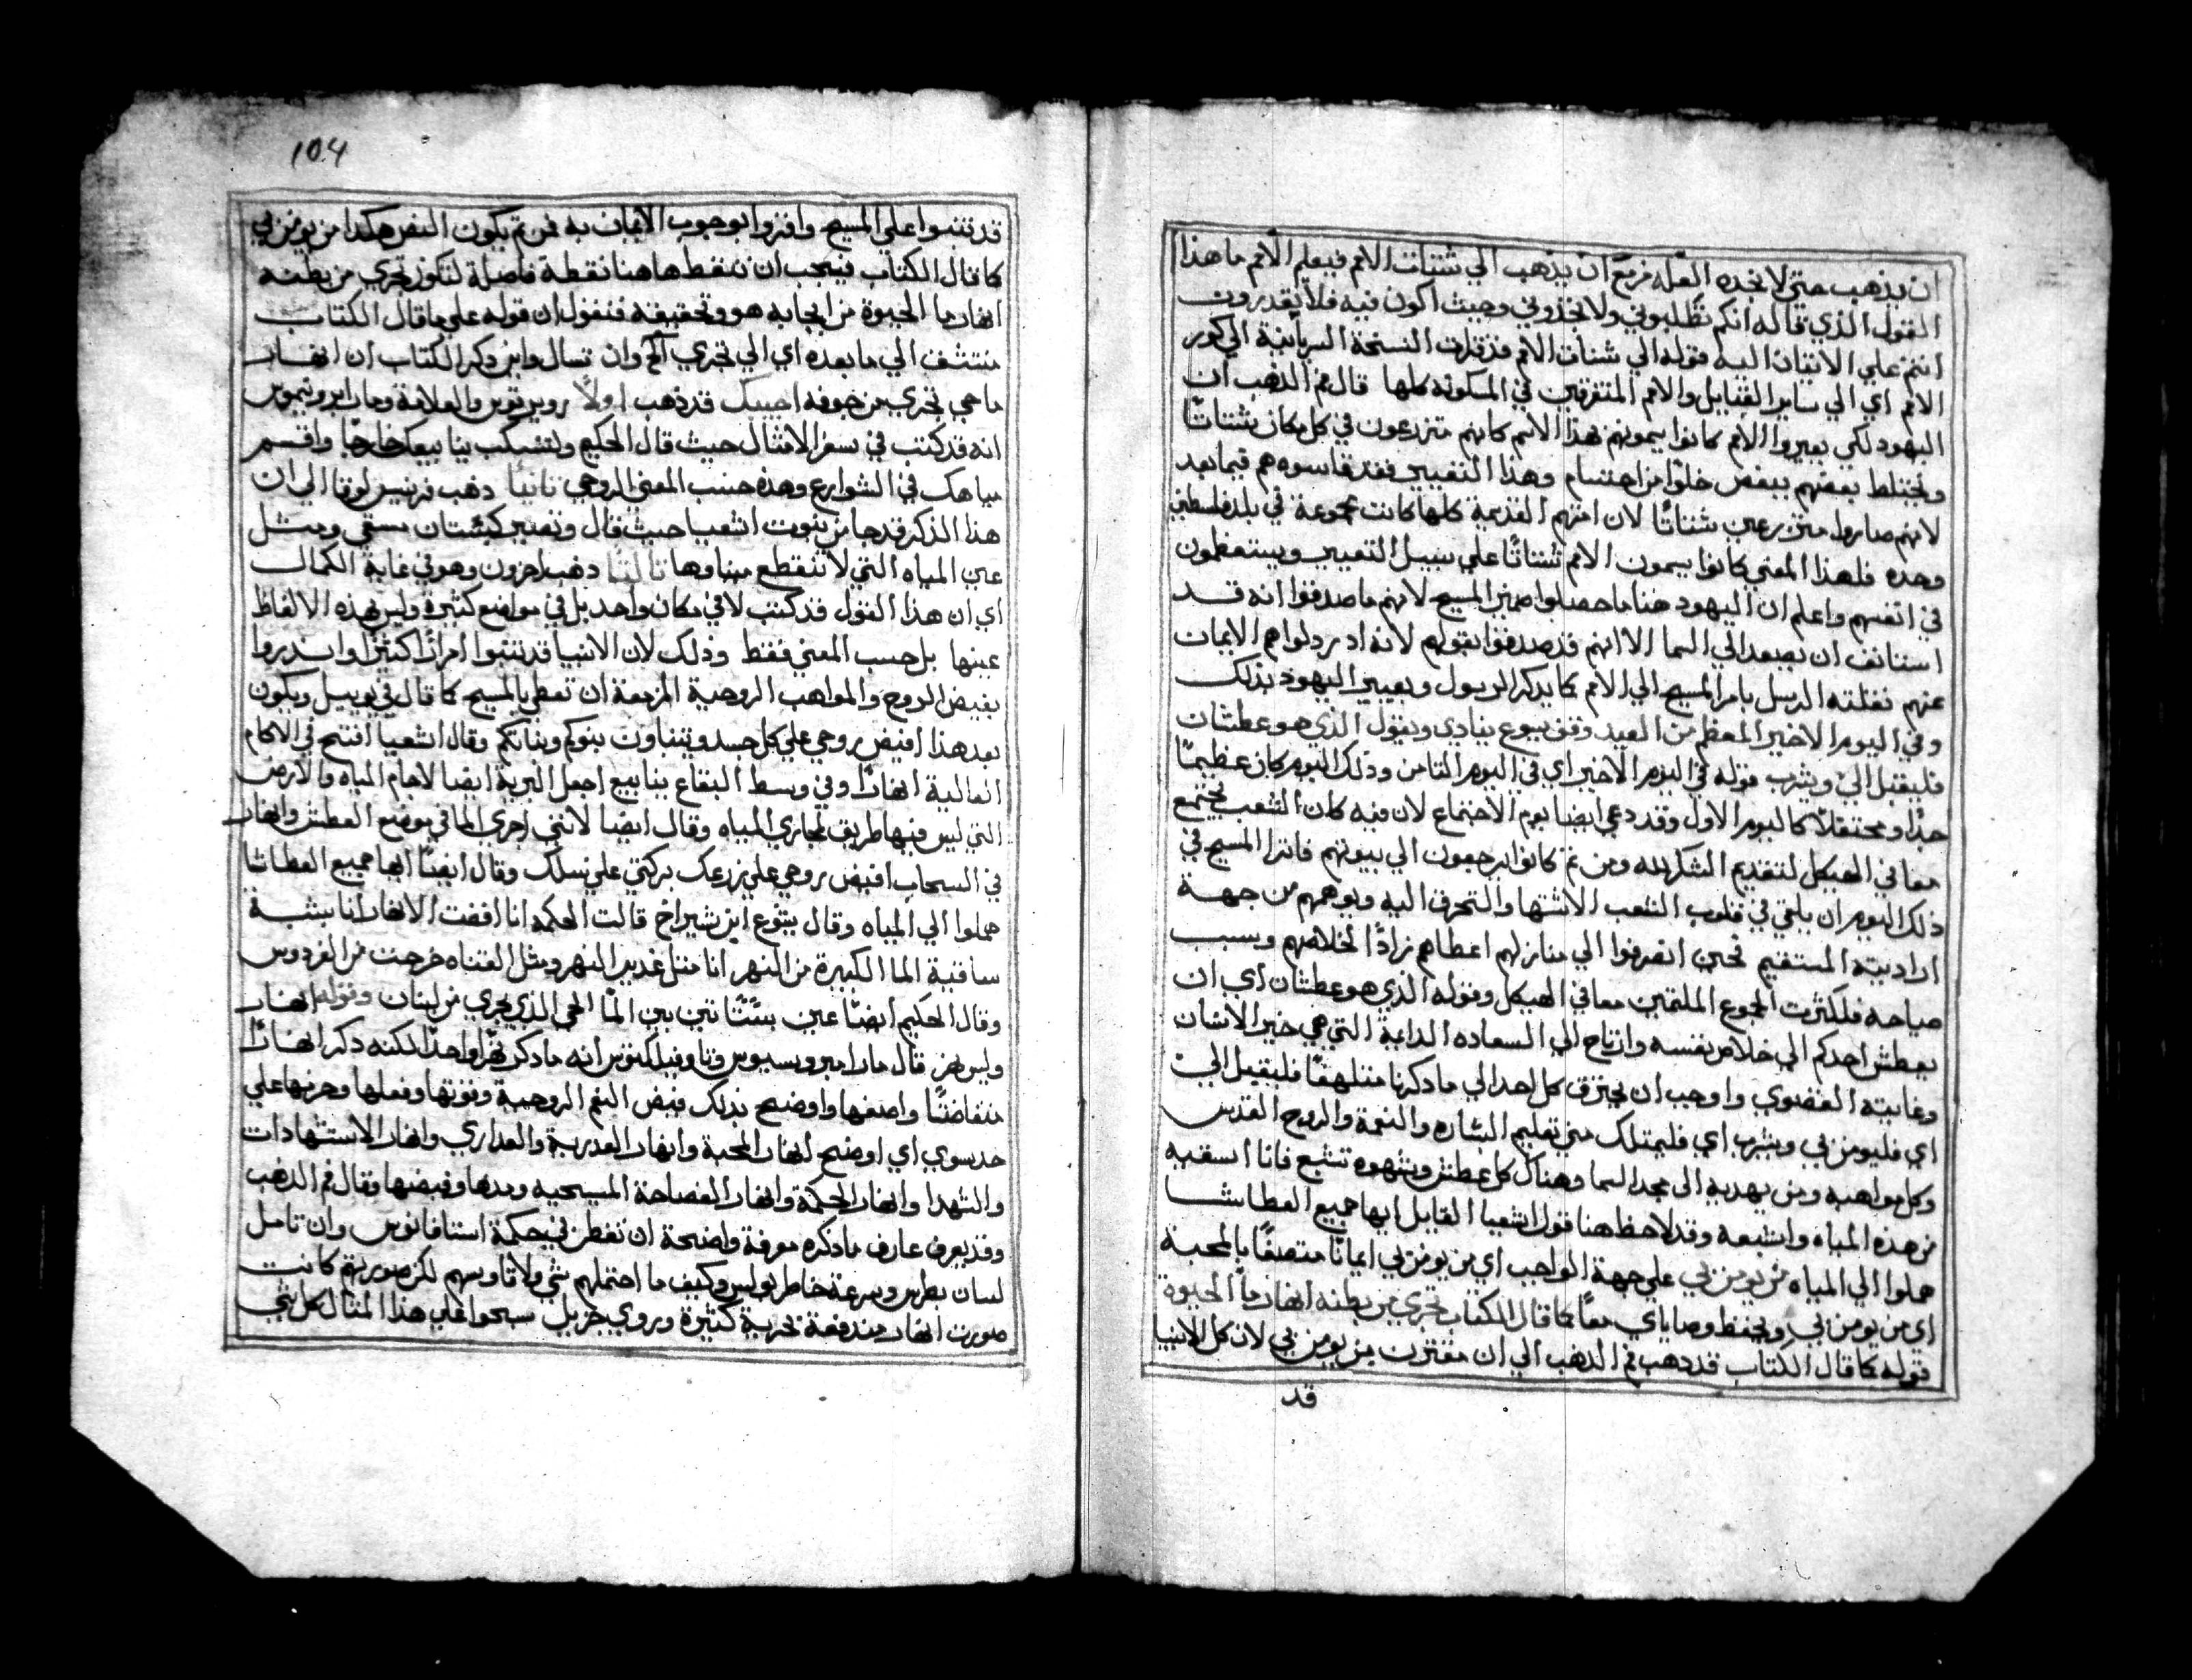 ان يذهب حتي لا نجده لعله مزمع ان يذهب الي شتات الامم فيعلم الامم ما هذا
القول الذي قاله انكم تطلبوني ولا تجدوني وحيث اكون فيه فلا يقدرون
انتم علي الاتيان اليه قوله الي شتات الامم فذ قرات النسخة السريانية الي كور
الامم اي الي ساير القبايل والامم المتفرقين في المسكونه كلها قال فم الذهب ان
اليهود لكي يعيروا الامم كانوا يسمونهم بهذا الاسم كانهم متزرعون في كل مكان شتاتًا
ويختلط بعضهم ببعض خلوًا من احتسام وهذا التغيير فقد قاسوه هم فيما بعد
لانهم صاروا متزرعين شتاتًا لان امتهم القديمة كلها كانت مجموعة في بلد فلسطين
وحده فلهذا المعني كانوا يسمون الامم شتاتًا علي سبيل التعيير ويستعظمون
في انفسهم واعلم ان اليهود هنا ما حصلوا ضمير المسيح لانهم ما صدقوا انه قد
استانف ان يصعد الي السما الا انهم قد صدقوا بقولهم لانه اد ردلوا هم الايمان
عنهم نقلته الرسل بامر المسيح الي الامم كما يدكر الرسول ويعيير اليهود بذلك
وفي اليوم الاخير المعظم من العيد وقف يسوع ينادي ويقول الذي هو عطشان
فليقبل اليّ ويشرب قوله في اليوم الاخير اي في اليوم الثامن وذلك اليوم كان عظيمًا
جدًا ومحتفلاً كاليوم الاول وقد دعي ايضا يوم الاجتماع لان فيه كان الشعب يجتمع
معا في الهيكل لتقديم الشكر لله ومن ثم كانوا يرجعون الي بيوتهم فاترا المسيح في
ذلك اليوم ان يلقي في قلوب الشعب الاشتها والتحرق اليه ويوهمهم من جهة
ارادبيته المستقيم فحين انصرفوا الي منازلهم اعطاهم زادًا لخلاصهم وبسبب
صياحه فلكثرت الجموع الملتمين معا في الهيكل وقوله الذي هو عطشان اي ان
يعطش احدكم الي خلاص نفسه وارتاح الي السعاده الدايمة التي هي خير الانسان
وغايته القصوي واوجب ان يحترق كل احد الي ما دكرنا متلهفًا فليقبل اليّ
اي فليومن بي ويشرب اي فليمتلك مني تعليم البشاره والنعمة والروح القدس
وكل مواهبه ومن يهديه الي مجد السما وهناك كل عطش وشهوه تشبع فانا اسقيه
من هذه المياه واشبعه وقد لاحظ هنا قول اشعيا القايل ايها جميع العطاشا
هلموا الي المياه من يومن بي علي جهة الواجب اي من يومن بي ايمانًا متصفًا بالمحبة
اي من يومن بي ويحفظ وصاياي معًا كما قال الكتاب تجري من بطنه انهار ما الحيوة
قوله كما قال الكتاب قد دهب فم الدهب الي ان مقترن من يومن بي لان كل الانبيا
قد
104
قد تنبوا علي المسيح واقروا بوجوب الايمان به فمن ثم يكون النص هكدا من يومن بي
كما قال الكتاب فيجب ان ننقط هاهنا نقطة فاصلة لتكون تجري من بطنه
انهار ما الحيوة من ايجابه هو وتحقيقه فنقول ان قوله علي ما قال الكتاب
منتشف الي ما بعده اي الي تجري الخ وان تسال واين دكر الكتاب ان انهار
ما هي تجري من جوفه اجيبك قد ذهب اولاً روبرتوس والعلامة ومار ايرونيموس
انه قد كتب في سفر الامثال حيث قال الحكيم ولتسكب ينابيعك خارجًا واقسم
مياهك في الشوارع وهذه حسب المعني الروحي ثانيًا دهب فرنسيس لوقا الي ان
هذا الذكر قد جا من نبوت اشعيا حيث قال وتصير كبستان مسقي ومثل
عين المياه التي لا تنقطع مياوها ثالثًا دهب اخرون وهو في غاية الكمال
اي ان هذا القول قد كتب لا في مكان واحد بل في مواضع كثيرة وليس بهذه الالفاظ
عينها بل حسب المعني فقط وذلك لان الانبيا قد تنبوا امرارًا كثيرة وانذروا
بفيض الروح والمواهب الروحية المزمعة ان تعطي بالمسيح كما قال في يوييل ويكون
بعد هذا افيض روحي علي كل جسد ويتنباون بنوكم وبناتكم وقال اشعيا افتح في الاكام
العالية انهارًا وفي وسط البقاع ينابيع اجعل البرية ايضا لاجام المياه والارض
التي ليس فيها طريق لمجاري المياه وقال ايضا لانني اجري الما في موضع العطش وانهار
في السحاب افيض روحي علي زرعك بركتي علي نسلك وقال ايضًا ايها جميع العطاشا
هلموا الي المياه وقال يشوع ابن شيراخ قالت الحكمه انا افقت الانهار انا بشبة
ساقية الما الكبيرة من النهر انا مثل غدير النهر ومثل القناه خرجت من الفردوس
وقال الحكيم ايضًا عين بستاتين بين المآ الحي الذي يجري من لبنان وقوله انهار
وليس نهر قال مار امبروسيوس وثاوفيلكتوس انه ما دكر نهرًا واحدًا لكنه دكر انهارًا
متفاضتًا واصفها واوضح بذلك فيض النعم الروحية وقوتها وفعلها وجريها علي
حد سوي اي اوضح انهار المحبة وانهار العذرية والعداري وانهار الاستشهادات
والشهدا وانهار الحكمة وانهار الفصاحة المسيحيه ومدها وفيضها وقال فم الدهب
وقد يعرف عارف ما دكره معرفة واضحة ان تفطن في حكمة استافانوس وان تامل
لسان بطرس وسرعة خاطر بولس وكيف ما احتملهم شي ولا قاومهم لكن صورتهم كانت
صورت انهار مندفعة بجرية كثيرة وروي جزيل سبحوا علي هذا المثال كل شي